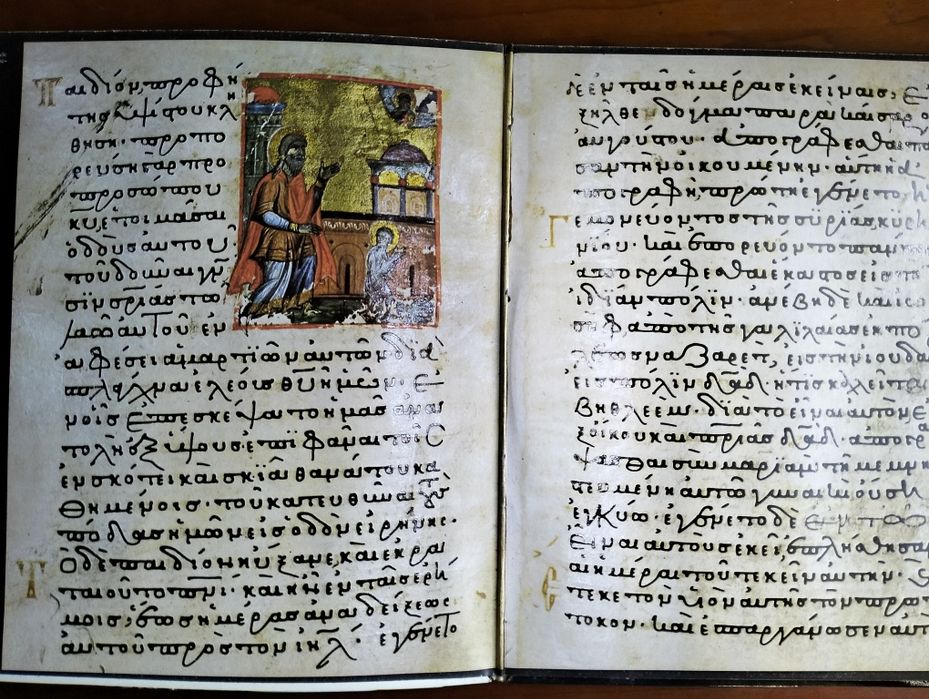 Παιδίον, προφή
της ὑψίστου κλη
θήσῃ· προπο
ρεύσῃ γὰρ πρὸ
προσώπου
κυ̅, ἑτοιμάσαι
ὁδοὺς αὐτοῦ·
τοῦ δοῦναι γνῶ
σιν σρ̅ιας τῷ
λαῷ αὐτοῦ ἐν
ἀφέσει ἁμαρτιῶν αὐτῶν διὰ
σπλάγχνα ἐλέους θυ̅ ἡμῶν· ἐ
ν οἷς ἐπεσκέψατο ἡμᾶς ἀνα
τολὴ ἐξ ὕψους ἐπιφᾶναι τοῖς
ἐν σκότει καὶ σκιᾷ θανάτου κα
θημένοις· τοῦ κατευθῦναι τοὺς
πόδας ἡμῶν εἰς ὁδὸν εἰρήνης·
Τὸ δὲ παιδίον ηὔξανε, καὶ ἐκρα
ταιοῦτο πνι̅· καὶ ἦν ἐν ταῖς ἐρή
μοις, ἕως ἡμέρας ἀναδείξεως
αὐτοῦ πρὸς τὸν ιη̅λ· ἐγένετο
δὲ ἐν ταῖς ἡμέραις ἐκείναις, ἐ
ξῆλθε δόγμα παρὰ καίσαρο
αὐγούστου· ἀπογράφεσθαι πᾶ
σαν τὴν οἰκουμένην· αὕτη ἡ ἀ
πογραφὴ, πρώτη ἐγένετο, ἡ
γεμονεύοντος τῆς συρίας κυρη
νίου· καὶ ἐπορεύοντο πάντ
ἀπογράφεσθαι ἕκαστος εἰς τ
ἰδίαν πόλιν· ἀνέβη δὲ καὶ ἰω
σὴφ ἀπὸ τῆς γαλιλαίας ἐκ πό
λεως ναζαρὲτ, εἰς τὴν ιουδα
εἰς πόλιν δα̅δ, ἥτις καλεῖτα
βηθλεέμ· διὰ τὸ εἶναι αὐτὸν ἐ
ξ οἴκου καὶ πρ̅ιας δα̅δ· ἀπογρά
ψασθαι σὺν μαριὰμ τῇ μεμνη
στευμένῃ αὐτῷ γυναικὶ οὔσῃ
ἐγκύῳ· ἐγένετο δὲ ἐν τῷ
εἶναι αὐτοὺς ἐκεῖ, ἐπλήσθησα
αἱ ἡμέραι τοῦ τεκεῖν αὐτὴν·
ἔτεκε τὸν υἱὸν αὐτῆς τὸν πρωτ
τοκον· καὶ ἐσπαργάνωσεν αὐτ